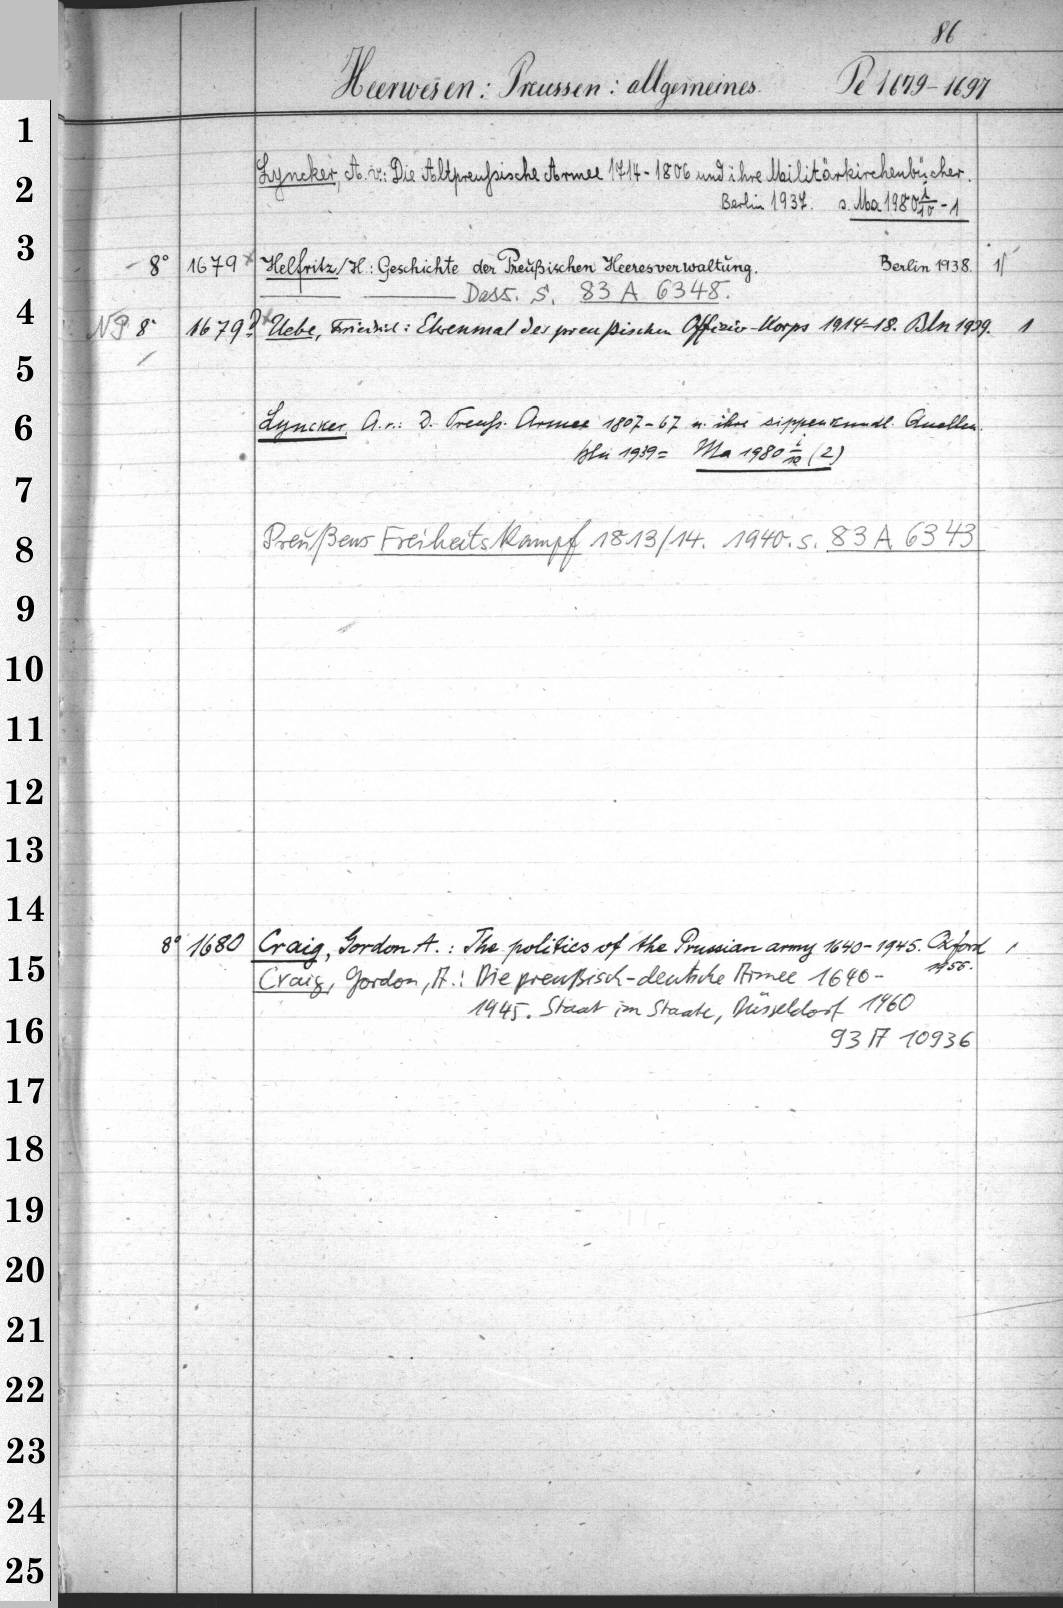 86
Heerwesen: Preussen: allgemeines. Pe 1679-1697
1
Lyncker, A. v.: Die Altpreußische Armee 1714-1806 und ihre Militärkirchenbücher.
2
Berlin 1937. s. Ma 1980 i/10 - 1
3
8° 1679 Helfritz, H.: Geschichte der Preußischen Heeresverwaltung. Berlin 1938. 1
Dass. s. 83 A 6348.
4
8° 1679 Uebe, Friedrich: Ehrenmal des preußischen Offizier-Korps 1914-18. Bln 1939. 1
5
6
Lyncker, A. v.: D. Preuß. Armee 1807-67 u. ihre sippenkundl. Quellen.
Bln 1939 = Ma 1980 i/10 (2)
7
8
Preußens Freiheitskampf 1813/14. 1940. s. 83 A 6343
9
10
11
12
13
14
8° 1680 Craig, Gordon A.: The politics of the Prussian army 1640-1945. Oxford
1955.
15
Craig, Gordon, A.: Die preußisch-deutsche Armee 1640-
1945. Staat im Staate, Düsseldorf 1960
16
93 A 10936
17
18
19
20
21
22
23
24
25